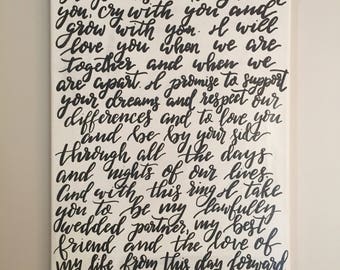 you, cry with you and
grow with you. I will
love you when we are
together and when we
are apart. I promise to support
your dreams and respect our
differences and to love you
and be by your side
through all the days
and nights of our lives
and with this ring I take
you to be my lawfully
wedded partner, my best
friend and the love of
my life from this day forward